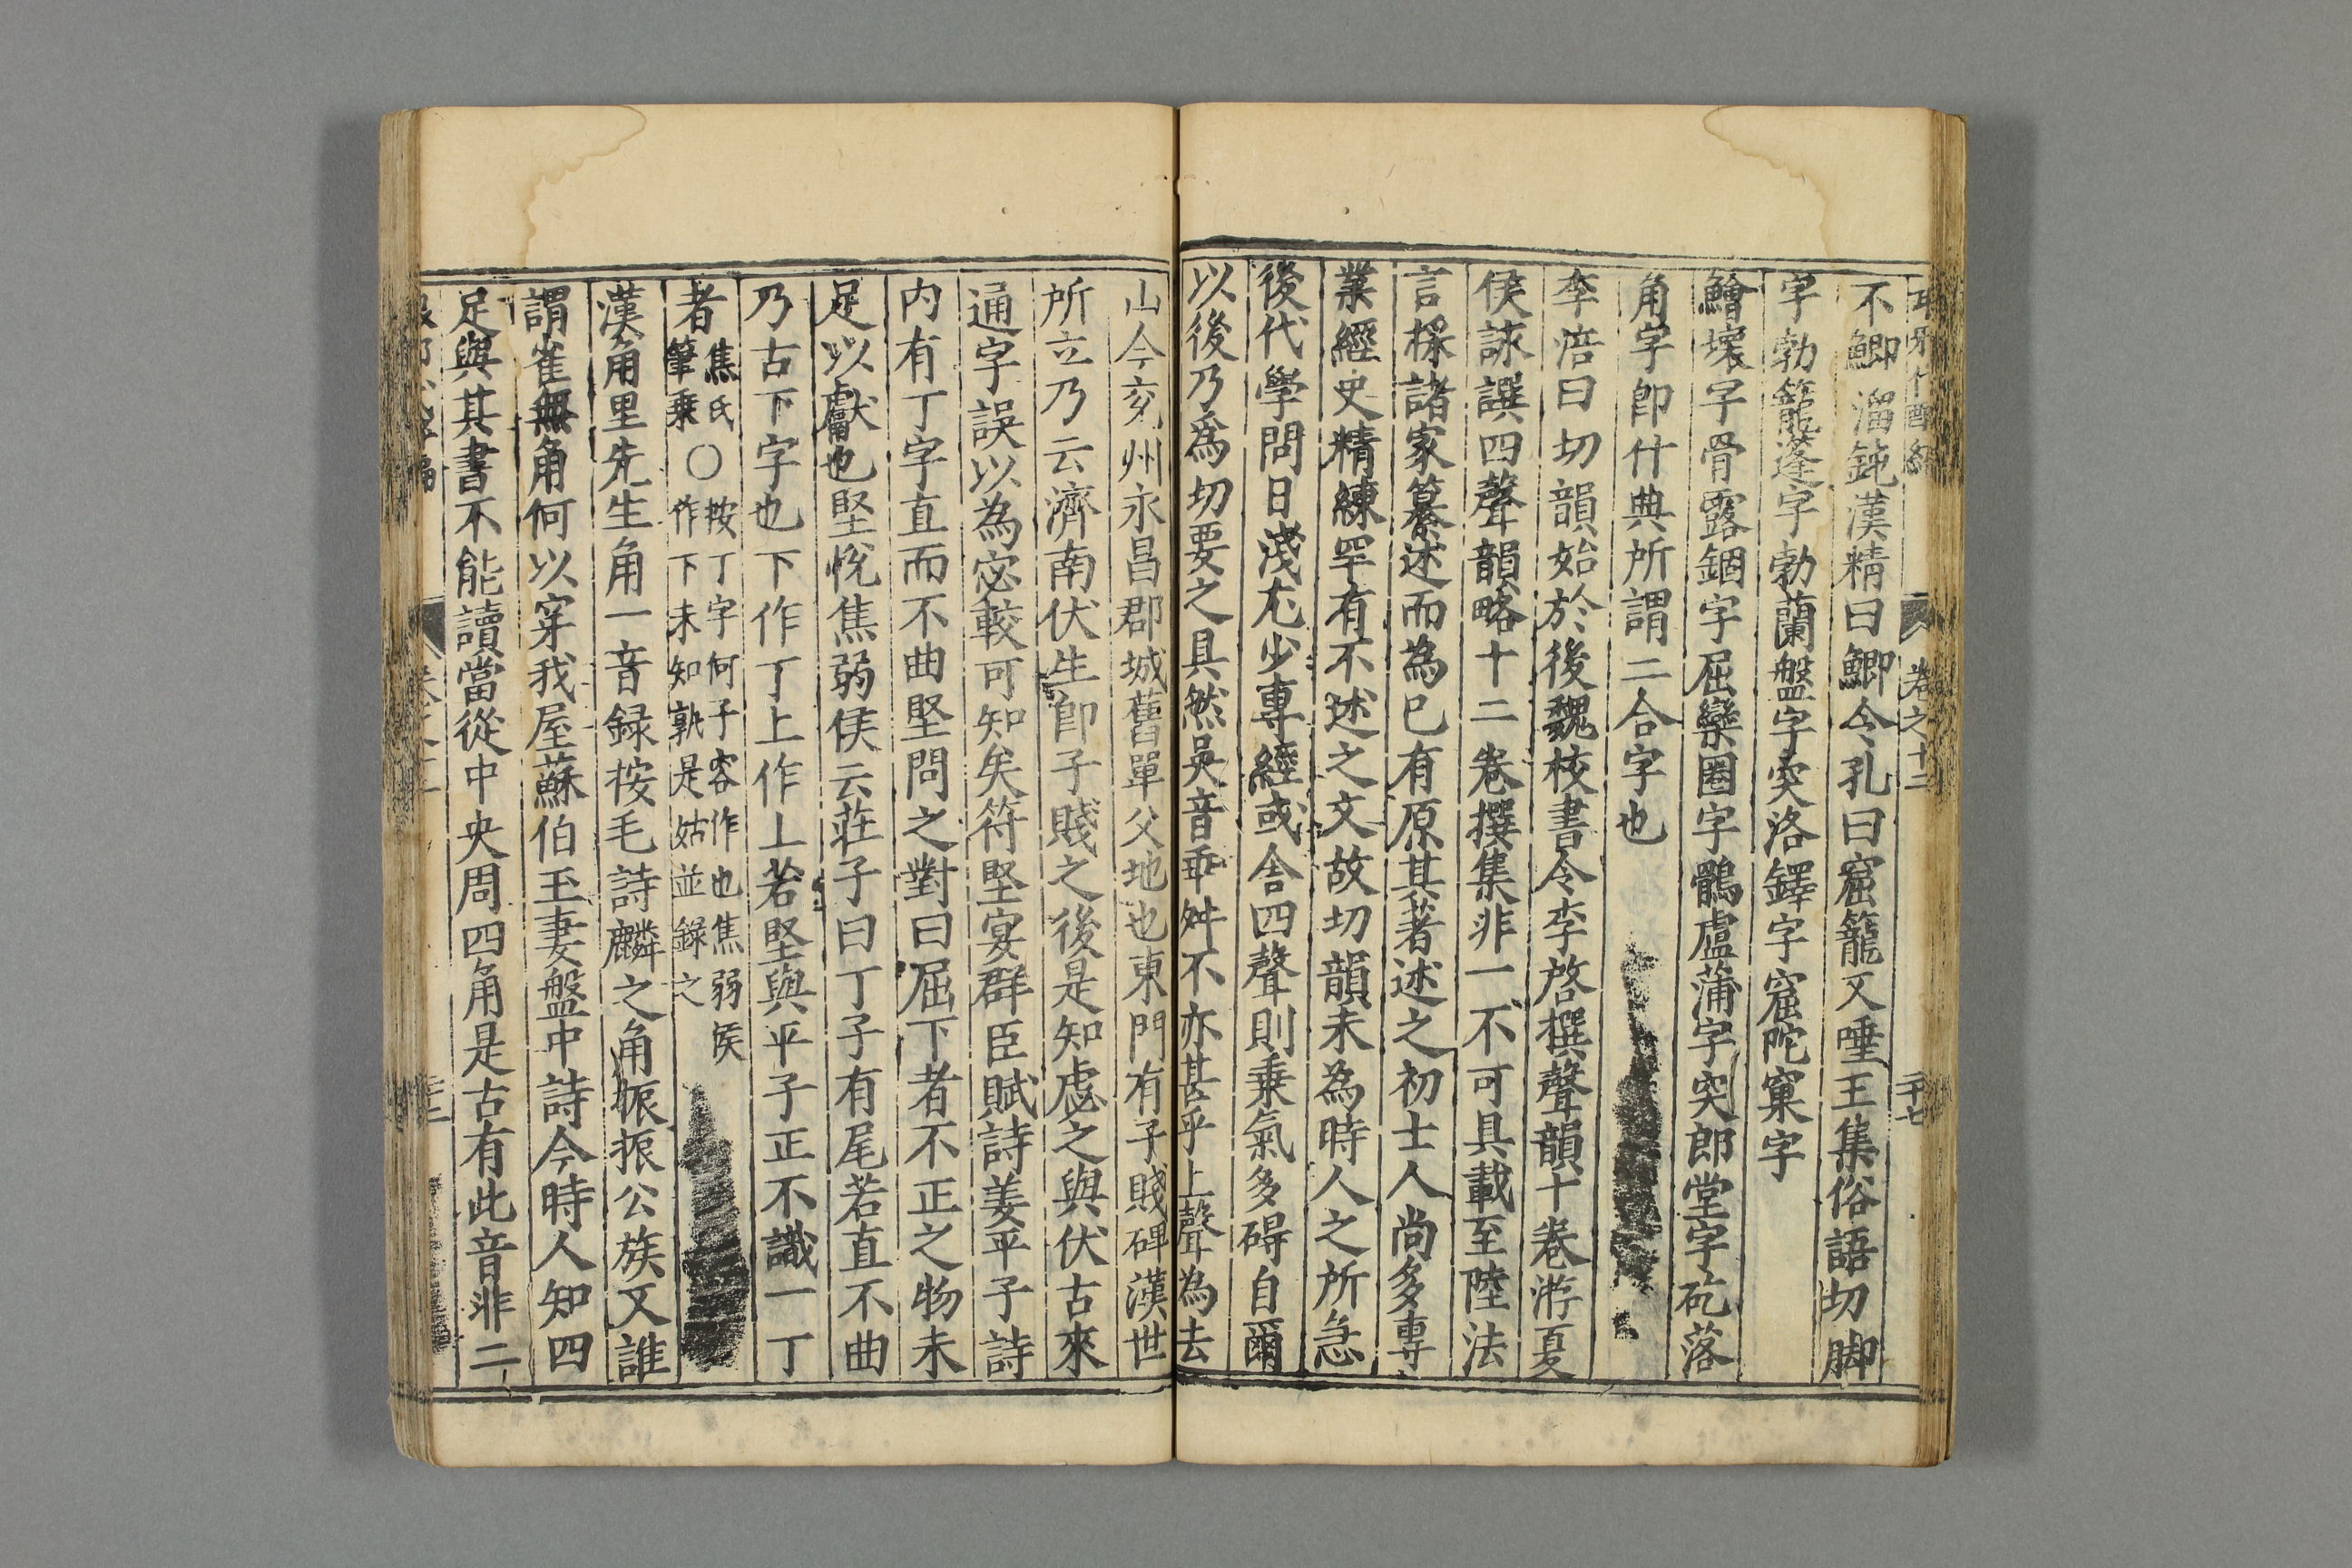 卷之十二
二十七
不鯽溜鈍漢精曰鯽令孔曰窟籠又唾王集俗語切脚
字勃籠蓬字勃蘭盤字突洛鐸字窟陀窠字
鱠壞字骨露錮字屈欒圈字鶻盧蒲字突郎堂字矻落
角字卽什典所謂二合字也
李涪曰切韻始於後魏校書令李啓撰聲韻十卷游夏
侯詠譔四聲韻略十二卷撰集非一不可具載至陸法
言採諸家纂述而為已有原其著述之初士人尚多專
業經史精練罕有不述之文故切韻未為時人之所急
後代學問日淺尤少專經或舍四聲則乗氣多碍自爾
以後乃為切要之具然吳音乖舛不亦甚乎上聲為去
山今兗州永昌郡城舊單父地也東門有子賤碑漢世
所立乃云濟南伏生卽子賤之後是知虙之與伏古來
通字誤以為宓較可知矣符堅宴群臣賦詩姜平子詩
内有丁字直而不曲堅問之對曰屈下者不正之物未
足以獻也堅悅焦弱侯云莊子曰丁子有尾若直不曲
乃古下字也下作丅上作丄若堅與平子正不識一丁
者焦氏筆乗○按丁字何子容作也焦弱侯作下未知孰是姑並錄之
漢角里先生角一音録按毛詩麟之角振振公族又誰
謂雀無角何以穿我屋蘇伯玉妻盤中詩今時人知四
足與其書不能讀當從中央周四角是古有此音非二